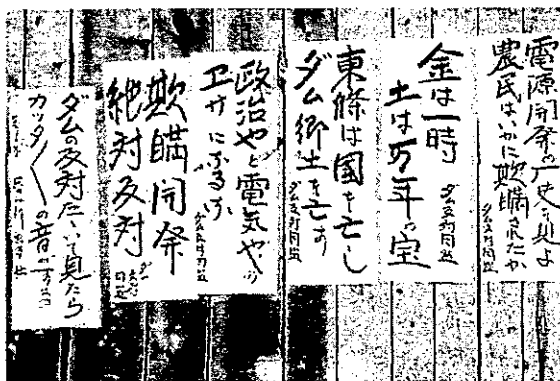 電源開発の歴史を見よ
農民はいかに欺瞞されたか
ダム反対同盟
金は一時
土は万年の宝
ダム反対同盟
東條は国を亡し
ダム郷土を亡す
ダム反対同盟
政治やと電気や
エサにふるふ
ダム反対同盟
欺瞞開発
絶対反対
ダム反対同盟
ダムの反対たゝいて見たら
カッタ〱の音がする